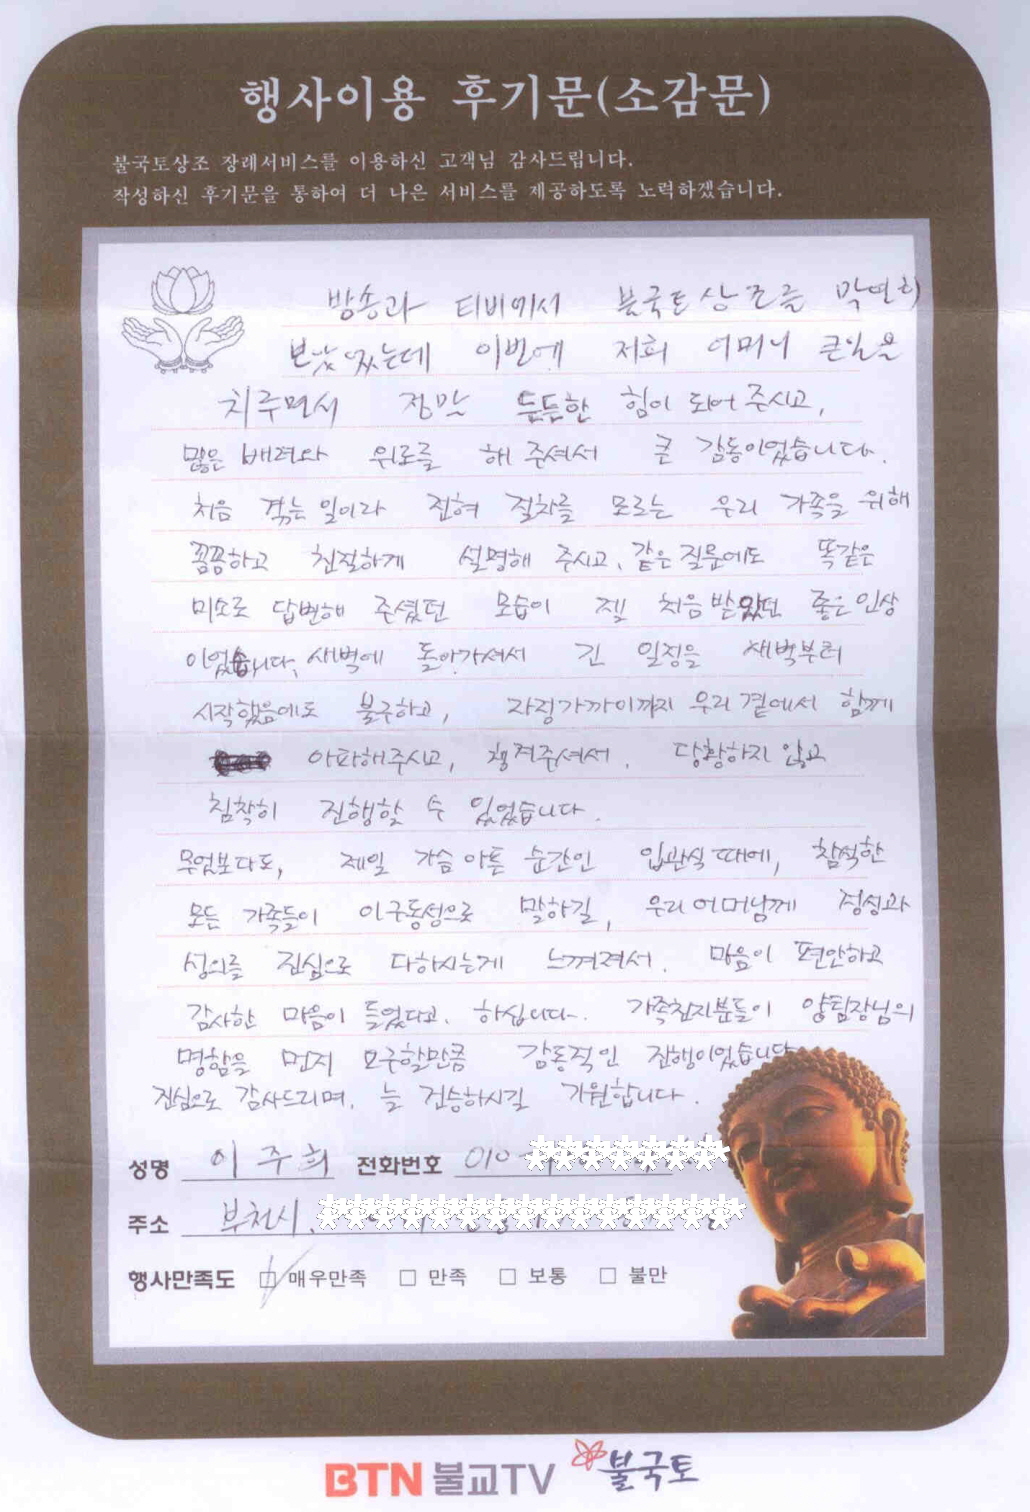 행사이용 후기문(소감문)
불국토상조 장례서비스를 이용하신 고객님 감사드립니다.
작성하신 후기문을 통하여 더 나은 서비스를 제공하도록 노력하겠습니다.
방송과 티비에서 불국토상조를 막연히
보았었는데 이번에 저희 어머니 큰일을
치루면서 정말 든든한 힘이 되어 주시고,
많은 배려와 위로를 해 주셔서 큰 감동이었습니다.
처음 겪는 일이라 전혀 절차를 모르는 우리 가족을 위해
꼼꼼하고 친절하게 설명해 주시고, 같은 질문에도 똑같은
미소로 답변해 주셨던 모습이 제일 처음 받았던 좋은 인상
이었습니다. 새벽에 돌아가셔서 긴 일정을 새벽부터
시작했음에도 불구하고, 자정가까이까지 우리 곁에서 함께
아파해주시고, 챙겨주셔서, 당황하지 않고
침착히 진행할 수 있었습니다.
무엇보다도, 제일 가슴 아픈 순간인 입관식 때에, 참석한
모든 가족들이 이구동성으로 말하길, 우리 어머님께 정성과
성의를 진심으로 다하시는게 느껴져서, 마음이 편안하고
감사한 마음이 들었다고, 하십니다. 가족친지분들이 양팀장님의
명함을 먼저 요구할만큼 감동적인 진행이었습니다.
진심으로 감사드리며, 늘 건승하시길 기원합니다.
성명 이주희 전화번호 010-********
주소 부천시, ******************
행사만족도 ☑ 매우만족 □ 만족 □ 보통 □ 불만
BTN 불교TV 불국토